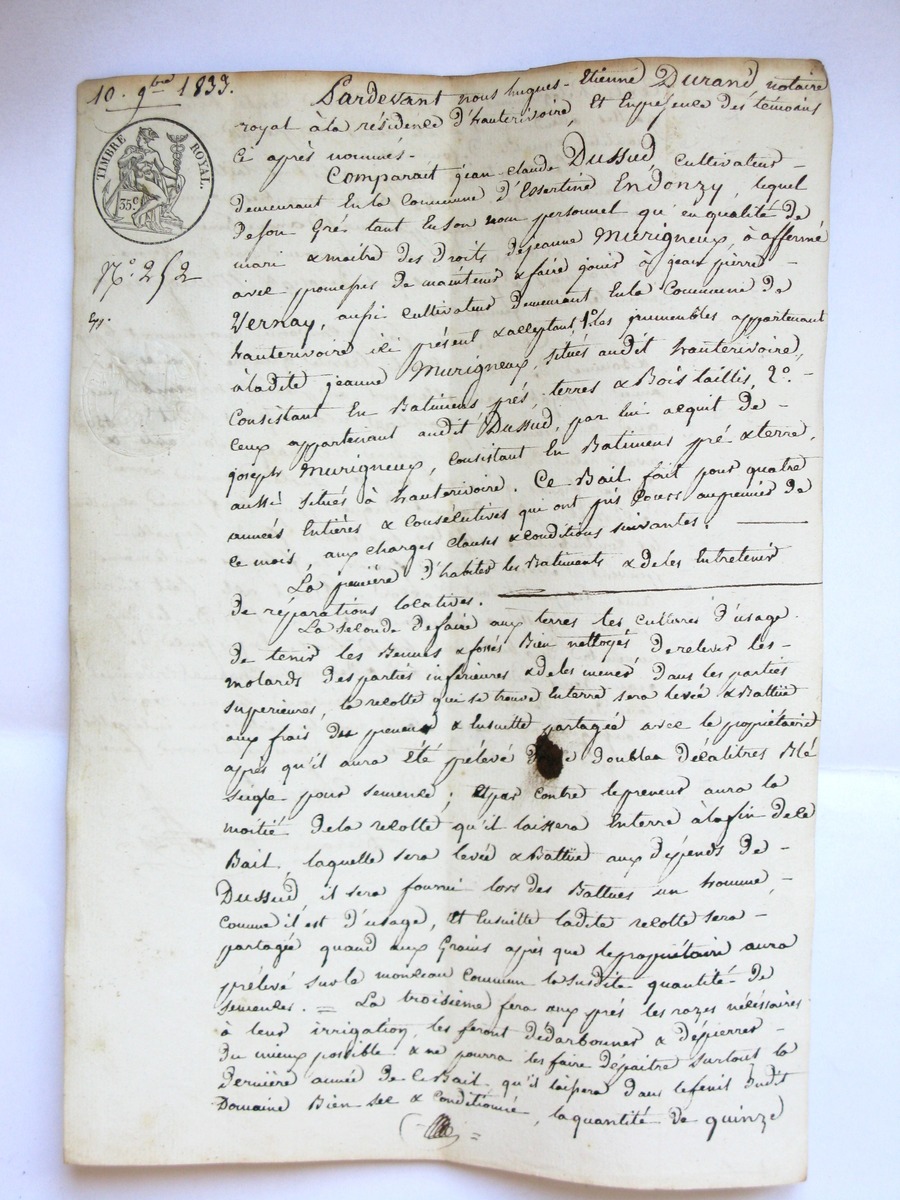 10. 9bre 1833.
TIMBRE ROYAL.
35c
N.o 252
Exp.
Pardevant nous hugues-Etienne Durand notaire
royal à la résidence d'hauterivoire, et En présence des témoins
Ce après nommés-
Comparait jean claude Dussud, cultivateur-
demeurant En la Commune d'Essertine Endonzy, lequel
de son Gré tant En son nom personnel qu'en qualité de
mari & maitre des Droits de jeanne Murigneux, à affermé
avec promesses de maintenir & faire jouir à jean pierre-
Vernay, aussi cultivateur demeurant En la Commune de
hauterivoire ici présent & acceptant, 1.o les immeubles appartenant
à ladite jeanne Murigneux, situés audit hauterivoire,
Consistant En Batimens prés, terres & Bois taillis, 2.o-
ceux appartenant audit Dussud, par lui acquit de-
joseph Murigneux, consistant en Batimens pré & terre,
aussi situés à hauterivoire. Ce Bail fait pour quatre
années Entières & Consécutives qui ont pris Cours au premier de
ce mois, aux charges clauses & conditions suivantes.
La première d'habiter les Batiments & de les Entretenir
de réparations locatives.
La seconde de faire aux terres les cultures d'usage.
De tenir les Bennes & fossés Bien nettoyés de relever les-
molards des parties inférieures & de les menés dans les parties
superieures, la recolte qui se trouve Enterre sera levée & Battüe
aux frais du preneur & Ensuitte partagée avec le propriétaire
après qu'il aura Eté prélevé doubles décalitres Blé
seigle pour semence; & par contre le preneur aura la
moitié de la recolte qu'il laissera Enterre à la fin de ce
Bail, laquelle sera levée & Battüe aux dépends de-
Dussud, il sera fourni lors des Battues un homme,-
Comme il est d'usage, Et Ensuitte ladite recolte sera-
partagée quand aux Grains après que le propriétaire aura
prélevé sur le monceau commun la susdite quantité de
semences. = La troisième fera aux prés les razes nécéssaires
à leur irrigation, les feront dédarbonner & dépierrer-
Du mieux possible & ne pourra les faire dépaitre surtout la
dernière année de ce Bail, qu'il laissera dans le fenil dudit
Domaine Bien sec & Conditionné, la quantité de quinze